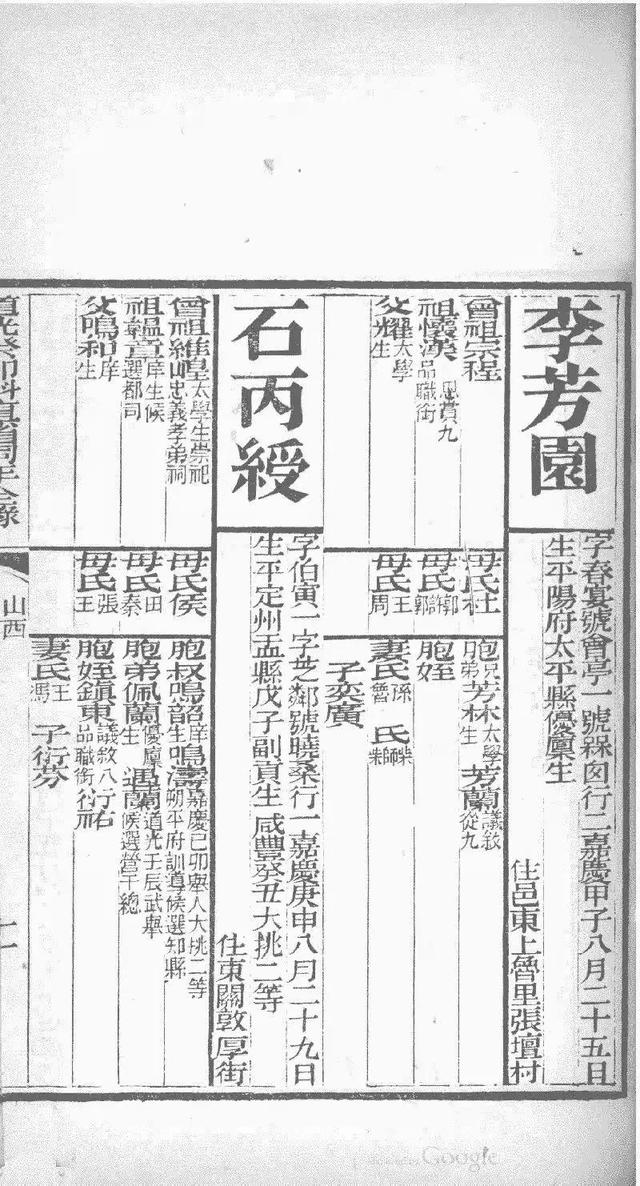 李芳園
字春宴號會亭一號槑囱行二嘉慶甲子八月二十五日
生平陽府太平縣優廩生
住邑東上魯里張壇村
曾祖宗程
祖懷漢恩賞九品職銜
父燿太學生
母氏杜
母氏郭許郭
母氏王周
胞兄弟芳林太學生 芳蘭議敘從九
胞姪
妻氏孫魯 氏柴
子奕廣
石丙綬
字伯寅一字芝鄰號曉桑行一嘉慶庚申八月二十九日
生平定州盂縣戊子副貢生 咸豐癸丑大挑二等
住東關敦厚街
曾祖維㠕太學生崇祀忠義孝弟祠
祖韞章庠生候選都司
父鳴和庠生
母氏侯
母氏田秦
母氏張王
胞叔鳴韶庠生 鳴濤嘉慶己卯舉人大挑二等朔平府訓導候選知縣
胞弟佩蘭優廩生 遇蘭道光壬辰武舉候選營千總
胞姪鎮東議敘八品職銜 衍祐
妻氏王馮 子衍芬
道光癸卯科直省同年全錄
山西
Google